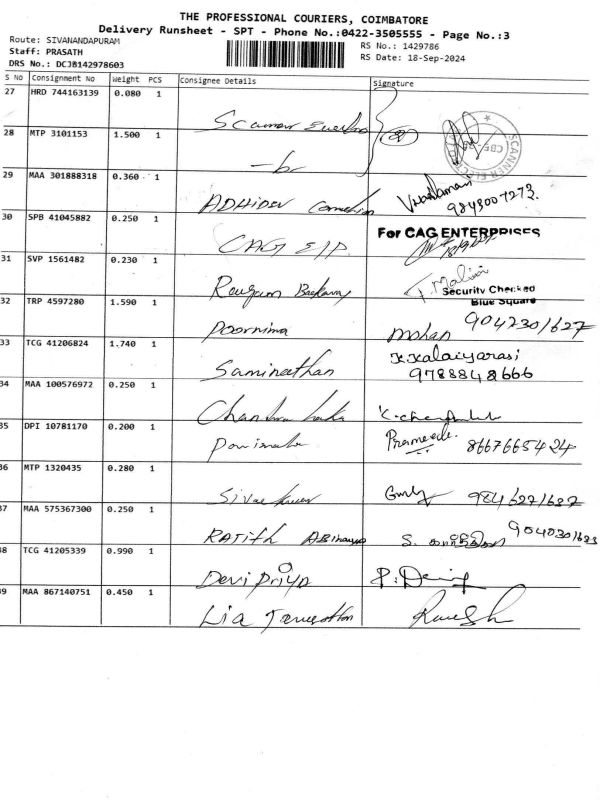 THE PROFESSIONAL COURIERS, COIMBATORE
Delivery Runsheet - SPT - Phone No.:0422-3505555 - Page No.:3
Route: SIVANANDAPURAM
Staff: PRASATH
DRS No.: DCJB142978603
RS No.: 1429786
RS Date: 18-Sep-2024
S No Consignment No Weight PCS Consignee Details Signature
27 HRD 744163139 0.080 1 Scanner
28 MTP 3101153 1.500 1
SCANNER CBE
29 MAA 301888318 0.360 1 ADHIDEV 9843007273
30 SPB 41045882 0.250 1 CAG For CAG ENTERPRISES
31 SVP 1561482 0.230 1 T. Malini
Security Checked
Blue Square
32 TRP 4597280 1.590 1 Poornima mohan 9042301627
33 TCG 41206824 1.740 1 Saminathan K.Kalaiyarasi
9788848666
34 MAA 100576972 0.250 1 Chandra
35 DPI 10781170 0.200 1 8667665424
36 MTP 1320435 0.280 1 98416271637
37 MAA 575367300 0.250 1 RAJith S.
38 TCG 41205339 0.990 1 Devi Priya
39 MAA 867140751 0.450 1 Lia Ramesh